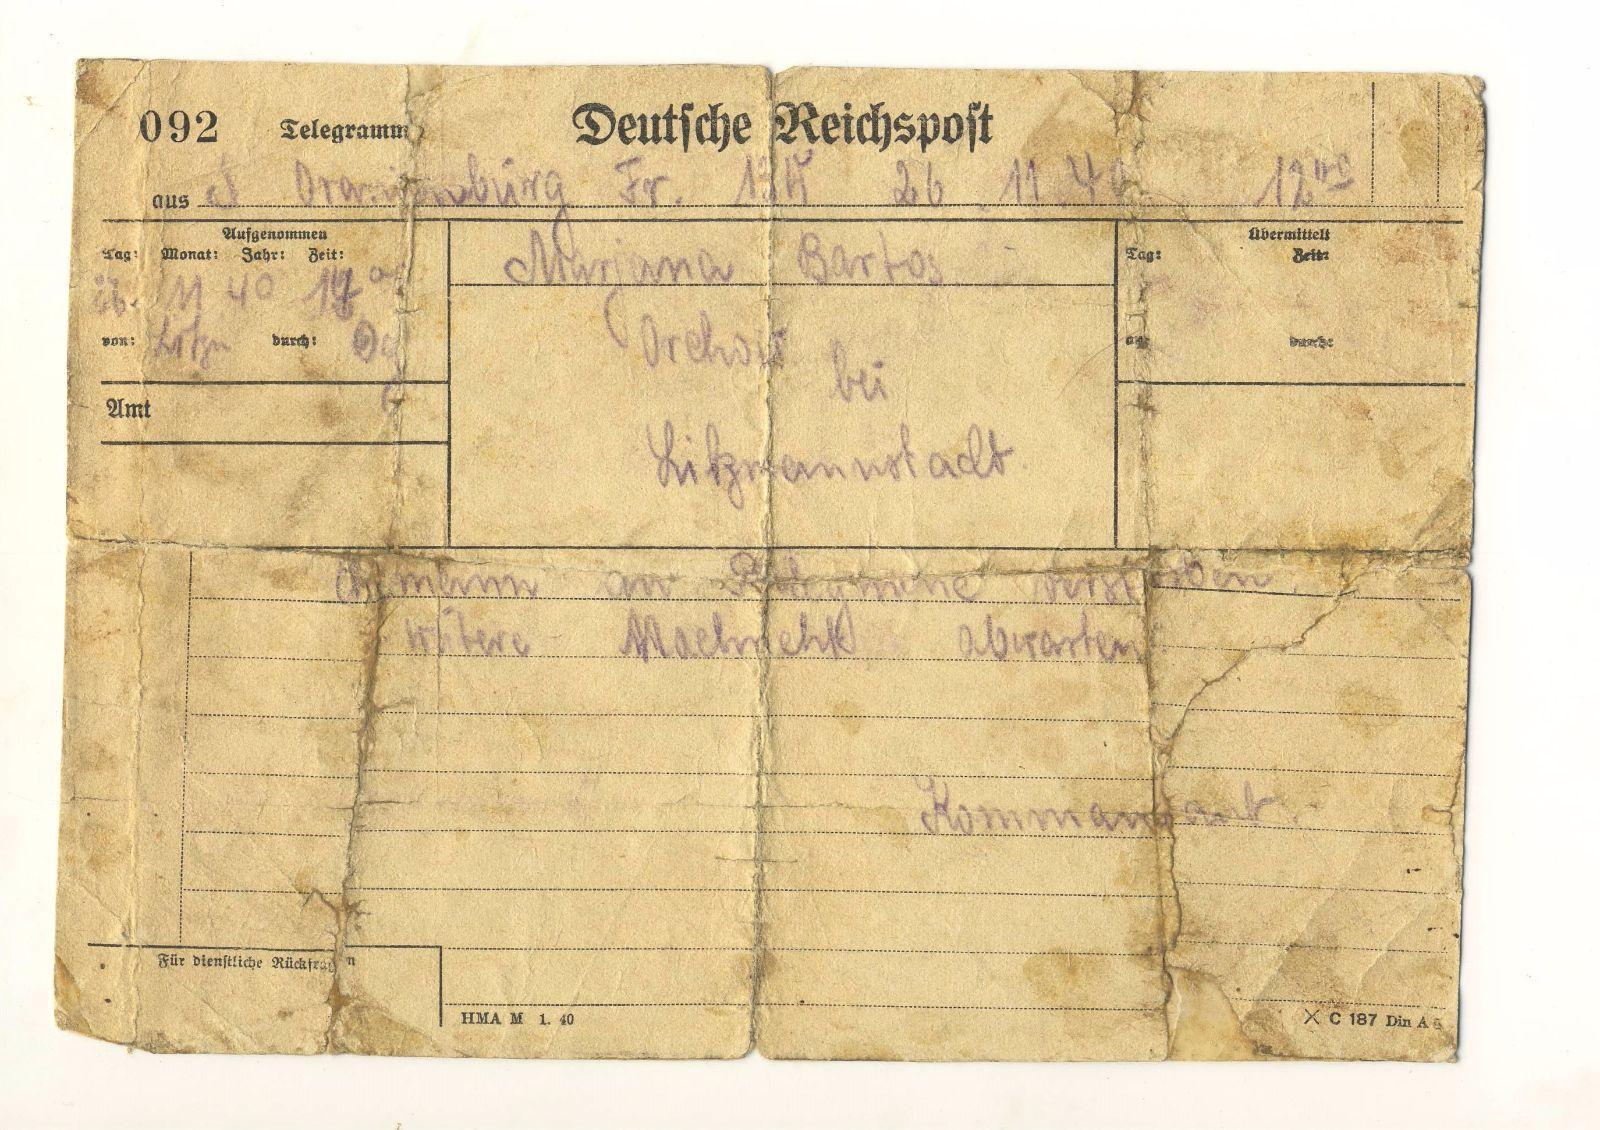 092 Telegramm Deutsche Reichspost
aus Oranienburg Fr. 26 11.40 12
Aufgenommen
Tag: Monat: Jahr: Zeit:
26. 11 40
von: Litzm durch:
Amt
Marjana Bartos
bei
Litzmannstadt.
Übermittelt
Tag: Zeit:
an: durch:
Ehemann an verstorben,
weitere abwarten.
Kommandant.
Für dienstliche Rückfragen
HMA M 1. 40
X C 187 Din A 5